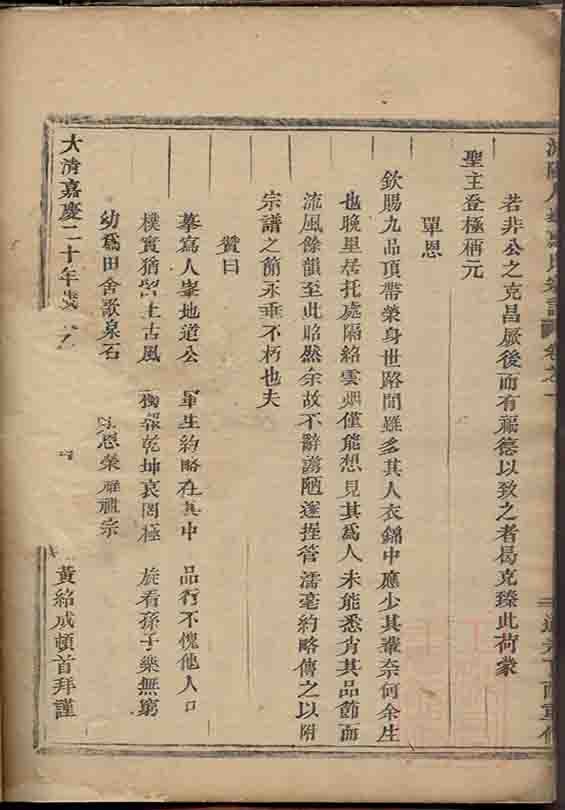 若非公之克昌厥後而有福德以致之者曷克臻此荷蒙
聖主登極柄元
覃恩
欽賜九品頂帶榮身世路間雖多其人衣錦中應少其輩奈何余生
也晚里居托處隔絡雲烟僅能想見其為人未能悉肖其品節而
流風餘韻至此昭然余故不辭譾陋遂捏管濡毫約略傳之以附
宗譜之簡永垂不朽也夫
贊曰
摹寫人峯地道公 生約略在其中 品行不愧他人口
樸實猶留上古風 獨報乾坤哀罔極 旋看孫子樂無窮
幼爲田舍歌泉石 恩榮 祖宗
大清嘉慶二十年歲 黃紹成頓首拜謹